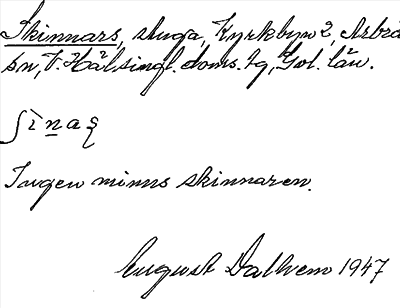 Skinnars, stuga, Kyrkbyn 2, Arbrå
sn, V. Hälsingl. doms. tg, Gvl. län.
ʃìnaş
Ingen minns skinnaren.
August Dalhem 1947